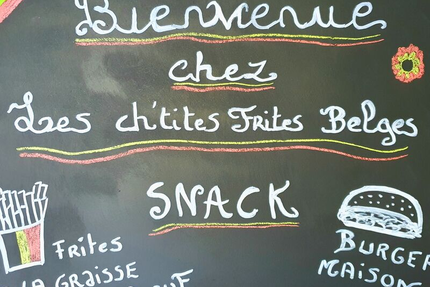 Bienvenue
chez
Les ch'tites Frites Belges
SNACK
Frites
LA GRAISSE
BURGER
MAISON